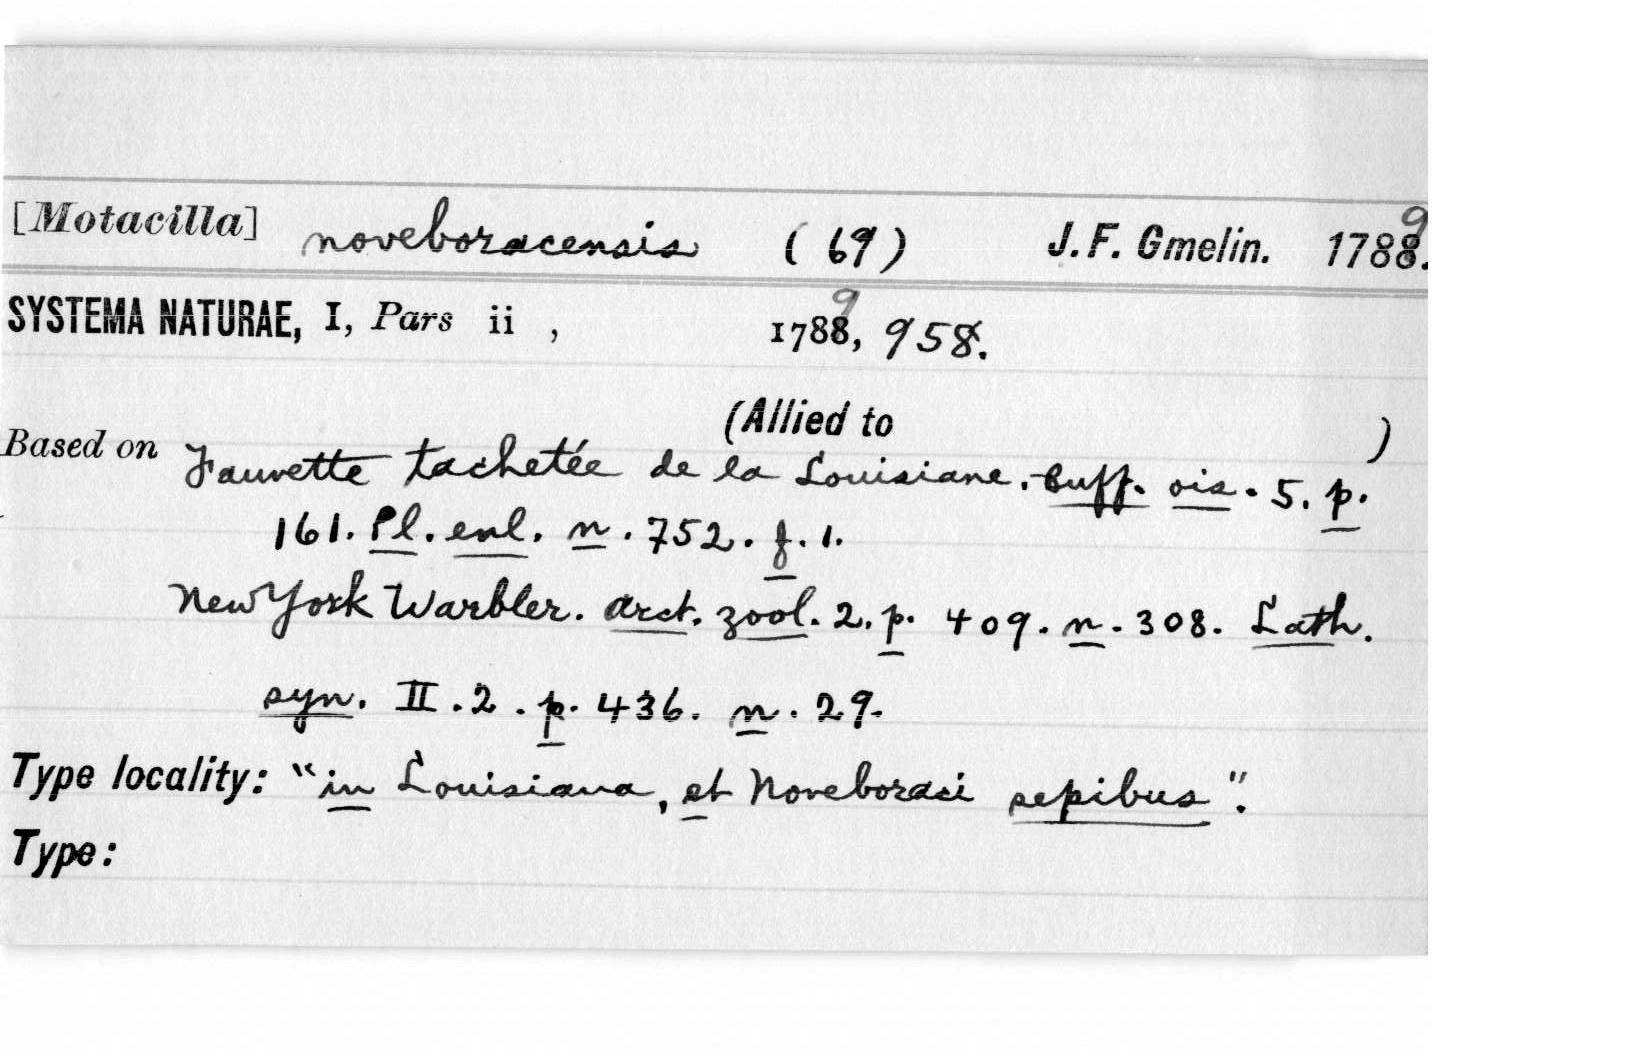 [Motacilla] noveboracensis (69) J. F. Gmelin. 1788. 9
SYSTEMA NATURAE, I, Pars ii , 1788, 9 958.
(Allied to )
Based on Fauvette tachetée de la Louisiane. Buff. ois. 5. p.
161. Pl. enl. n. 752. f. 1.
New York Warbler. arct. zool. 2. p. 409. n. 308. Lath.
syn. II. 2. p. 436. n. 29.
Type locality: "in Louisiana, et Noveboraci sepibus".
Type: